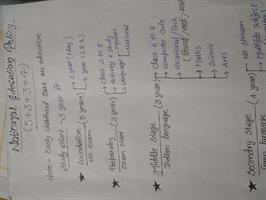 National Education Policy
(5+3+3+4)
Note - Early childhood care an education
Study start - 3 year
★ foundation (5 year) → 3 year (play)
→ 2 year (1 & 2)
No exam
★ Preparatory (3 year) → class 3 to 5
Exam start → reading + study
→ Language
★ Middle stage (3 year) → class 6 to 8
Indian language → computer code
→ Vocational / Tech
→ Maths
→ Science
→ Arts
★ Secondary Stage (4 year) → No stream
language → Multiple subject